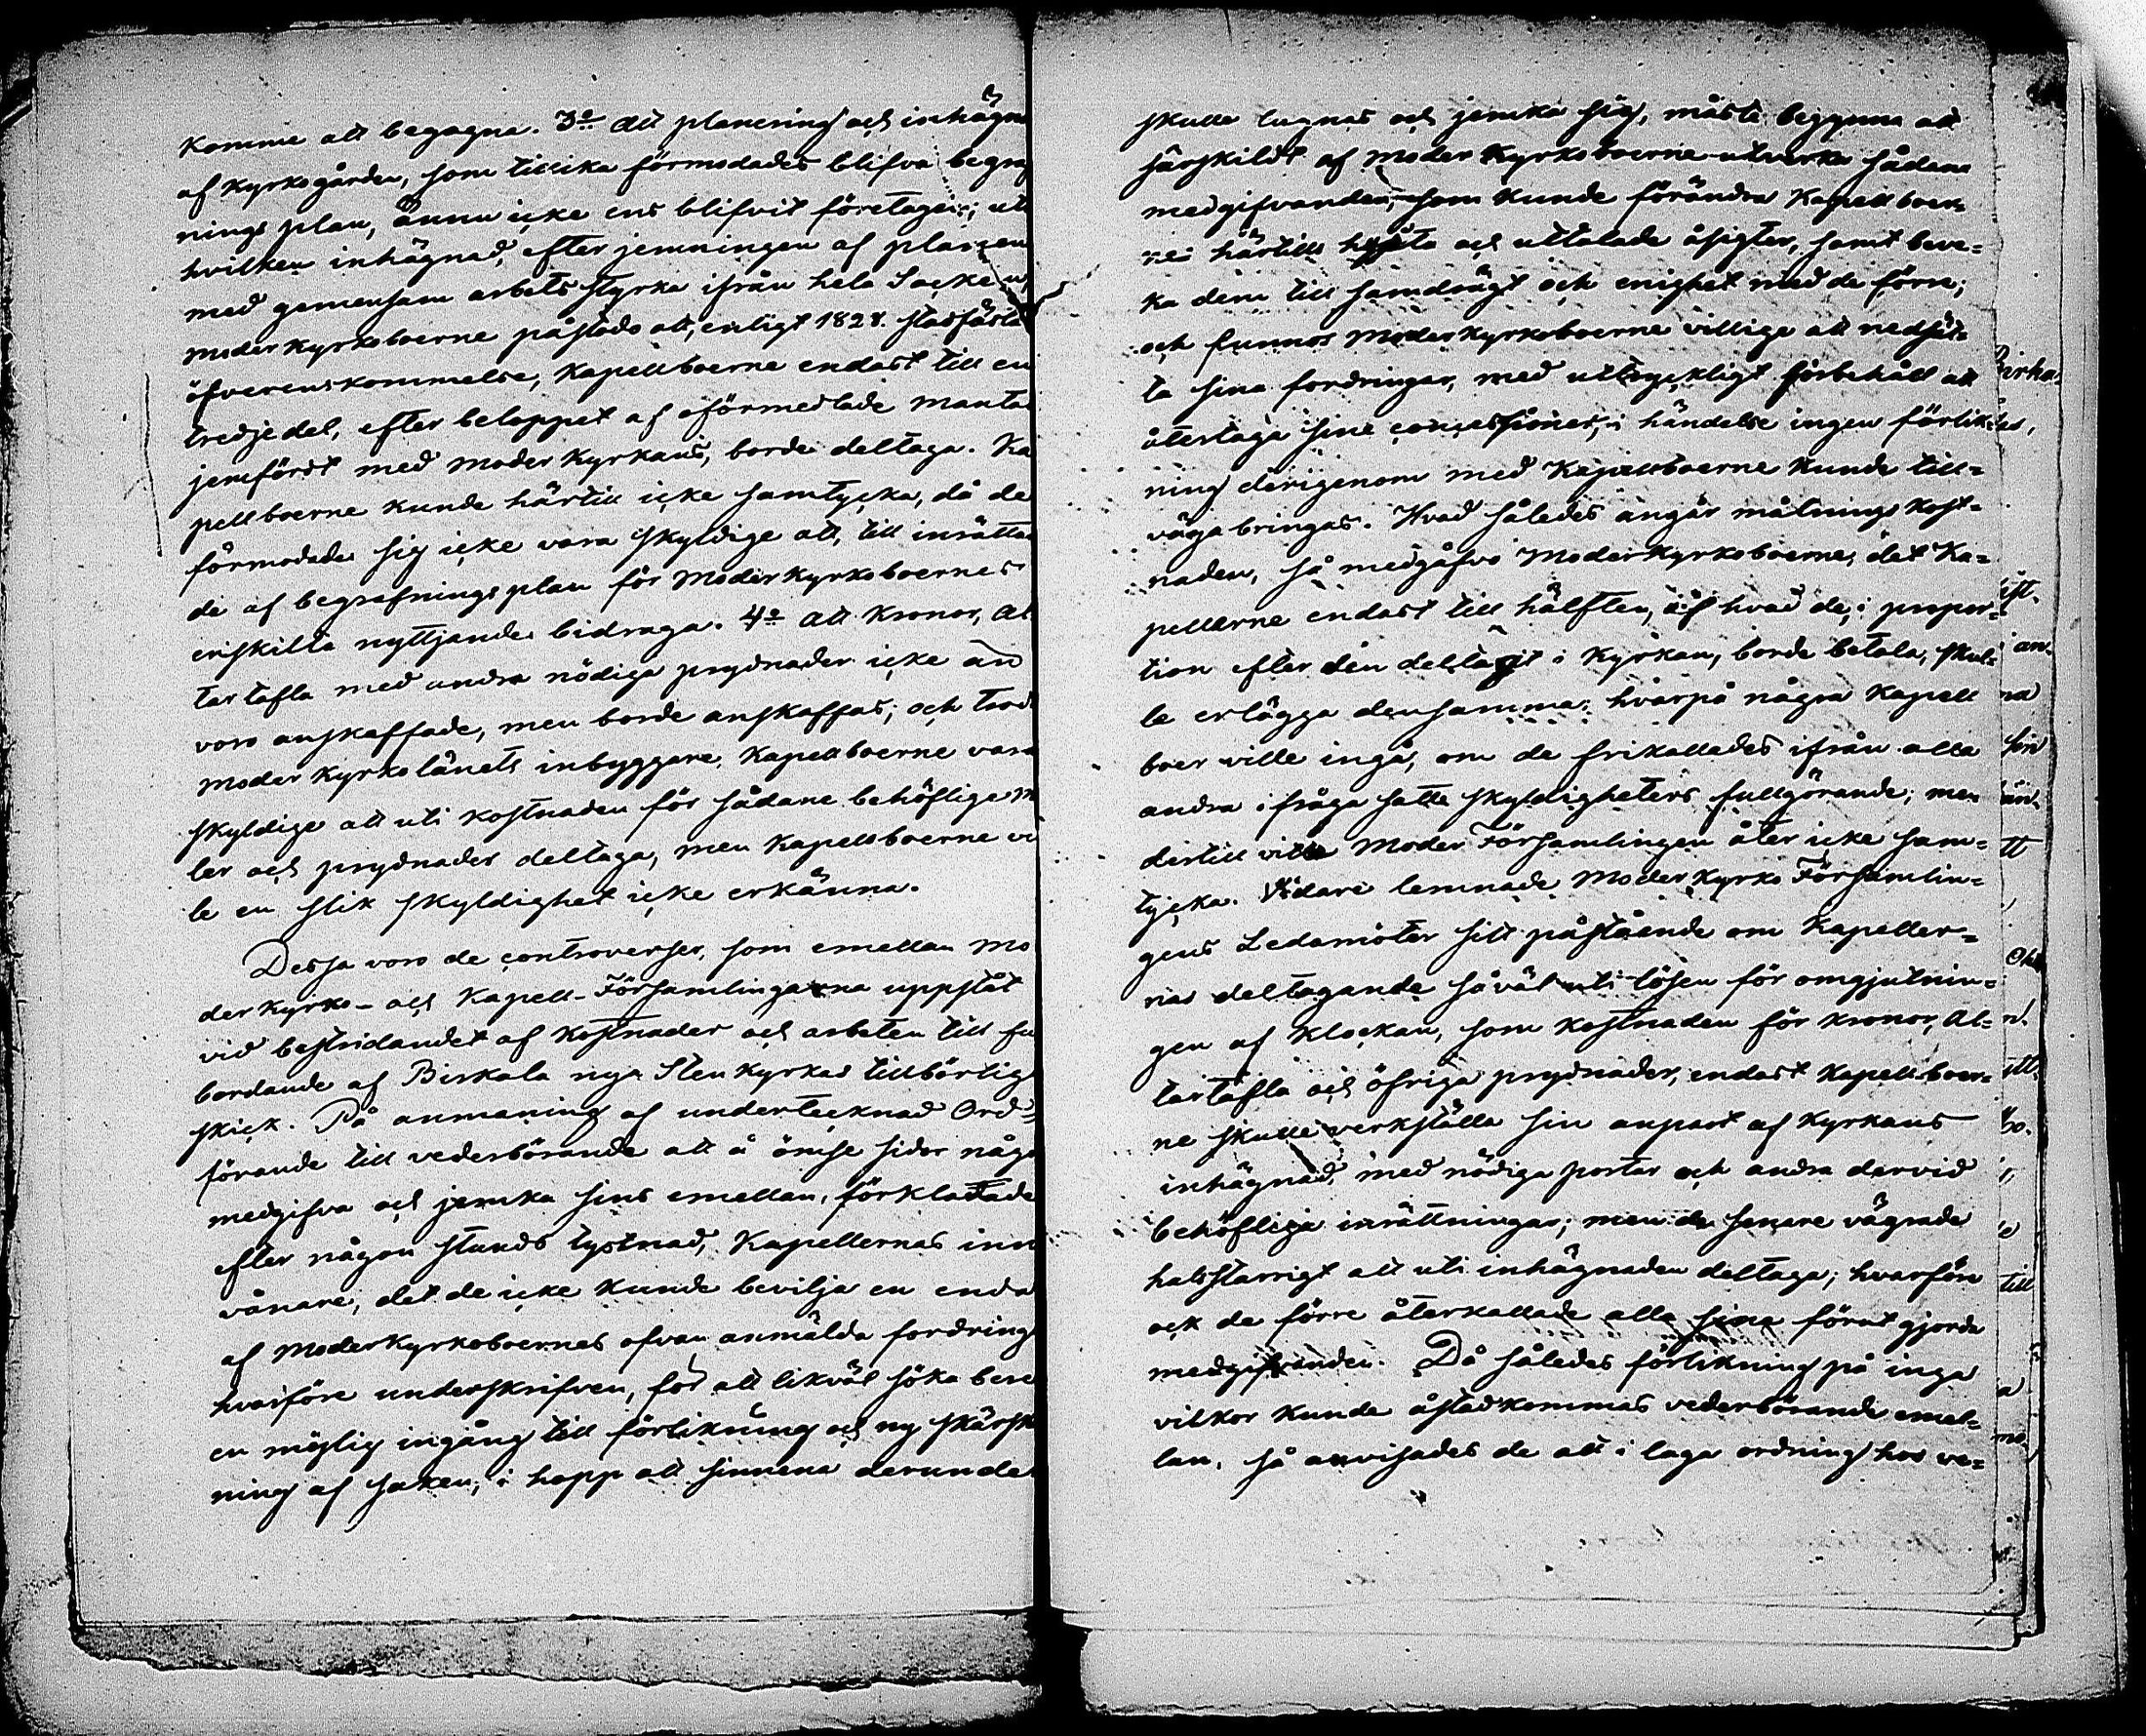 komme att begagna. 3º Att planering och inhägn
af Kyrkogården, som tillika förmodades blifva begraf
nings plan, ännu icke ens blifvit företagen; uti
hvilken inhägnad, efter jemningen af planen
med gemensam arbets styrka ifrån hela Socken,
moderkyrkoboerne påstodo att, enligt 1828. stadfästa
öfverenskommelse, Kapellboerne endast till en
tredjedel, efter beloppet af oförmedlade mantal
jemfördt med moder Kyrkans, borde deltaga. Ka
pellboerne kunde härtill icke samtycka, då de
förmodade sig icke vara skyldige att, till inrättan
de af begrafningsplan för Moderkyrkoboernes
enskilta nyttjande bidraga. 4º Att Kronor, Al
tartafla med andra nödiga prydnader icke än
voro anskaffade, men borde anskaffas; och trod
moder Kyrkolänets inbyggare, Kapellboerne vara
skyldige att uti kostnaden för sådane behöflige m
ler och prydnader deltaga, men Kapellboerne vi
le en slik skyldighet icke erkänna.
Dessa voro de controverser, som emellan Mo
derkyrko- och Kapell-Församlingarna uppstått
vid bestridandet af kostnader och arbeten till fu
bordande af Birkala nya Stenkyrkas tillbörliga
skick. På anmaning af undertecknad Ord-
förande till vederbörande att å ömse sidor någo
medgifva och jemka sins emellan, förklarade
efter någon stunds tystnad, Kapellernas inn
vånare, det de icke kunde bevilja en enda
af Moderkyrkoboernes ofvan anmälda fordringa
hvarföre underskrifven, för att likväl söka bere
en möjlig ingång till förlikning och ny skärsk
ning af saken, i hopp att sinnena derunder
skulle lugnas och jemka sig, måste begynna att
särskildt af Moder Kyrkoboerne utverka sådana
medgifvanden, som kunde förändra Kapellboer-
nes härtill hysta och uttalade åsigter, samt beve-
ka dem till samdrägt och enighet med de förre;
och funnos Moderkyrkoboerne villige att nedsät-
ta sina fordringar, med uttryckligt förbehåll att
återtaga sine concessioner, i händelse ingen förlik-
ning derigenom med Kapellboerne kunde till-
väga bringas. Hvad således angår målnings kost-
naden, så medgåfvo Moderkyrkoboerne, det Ka-
pellerne endast till hälften, af hvad de, i propor-
tion efter den deltagit i Kyrkan, borde betala, skul-
le erlägga densamma; hvarpå några Kapell
boer ville ingå, om de frikallades ifrån alla
andra i fråga satte skyldigheters fullgörande; men
dertill ville Moder Församlingen åter icke sam-
tycka. Vidare lemnade Moder Kyrko Församlin-
gens Ledamöter sitt påstående om Kapeller-
nas deltagande såväl uti lösen för omgjutnin-
gen af Klockan, som kostnaden för kronor, Al-
tartafla och öfriga prydnader, endast Kapellboer-
ne skulle verkställa sin anpart af Kyrkans
inhägnad med nödiga portar och andra dervid
behöfliga inrättningar; men de senare vägrade
halsstarrigt att uti inhägnaden deltaga; hvarföre
ock de förre återkallade alla sina förut gjorda
medgifvanden. Då således förlikning på inga
vilkor kunde åstadkommas vederbörande emel-
lan, så anvisades de att i laga ordning hos ve-